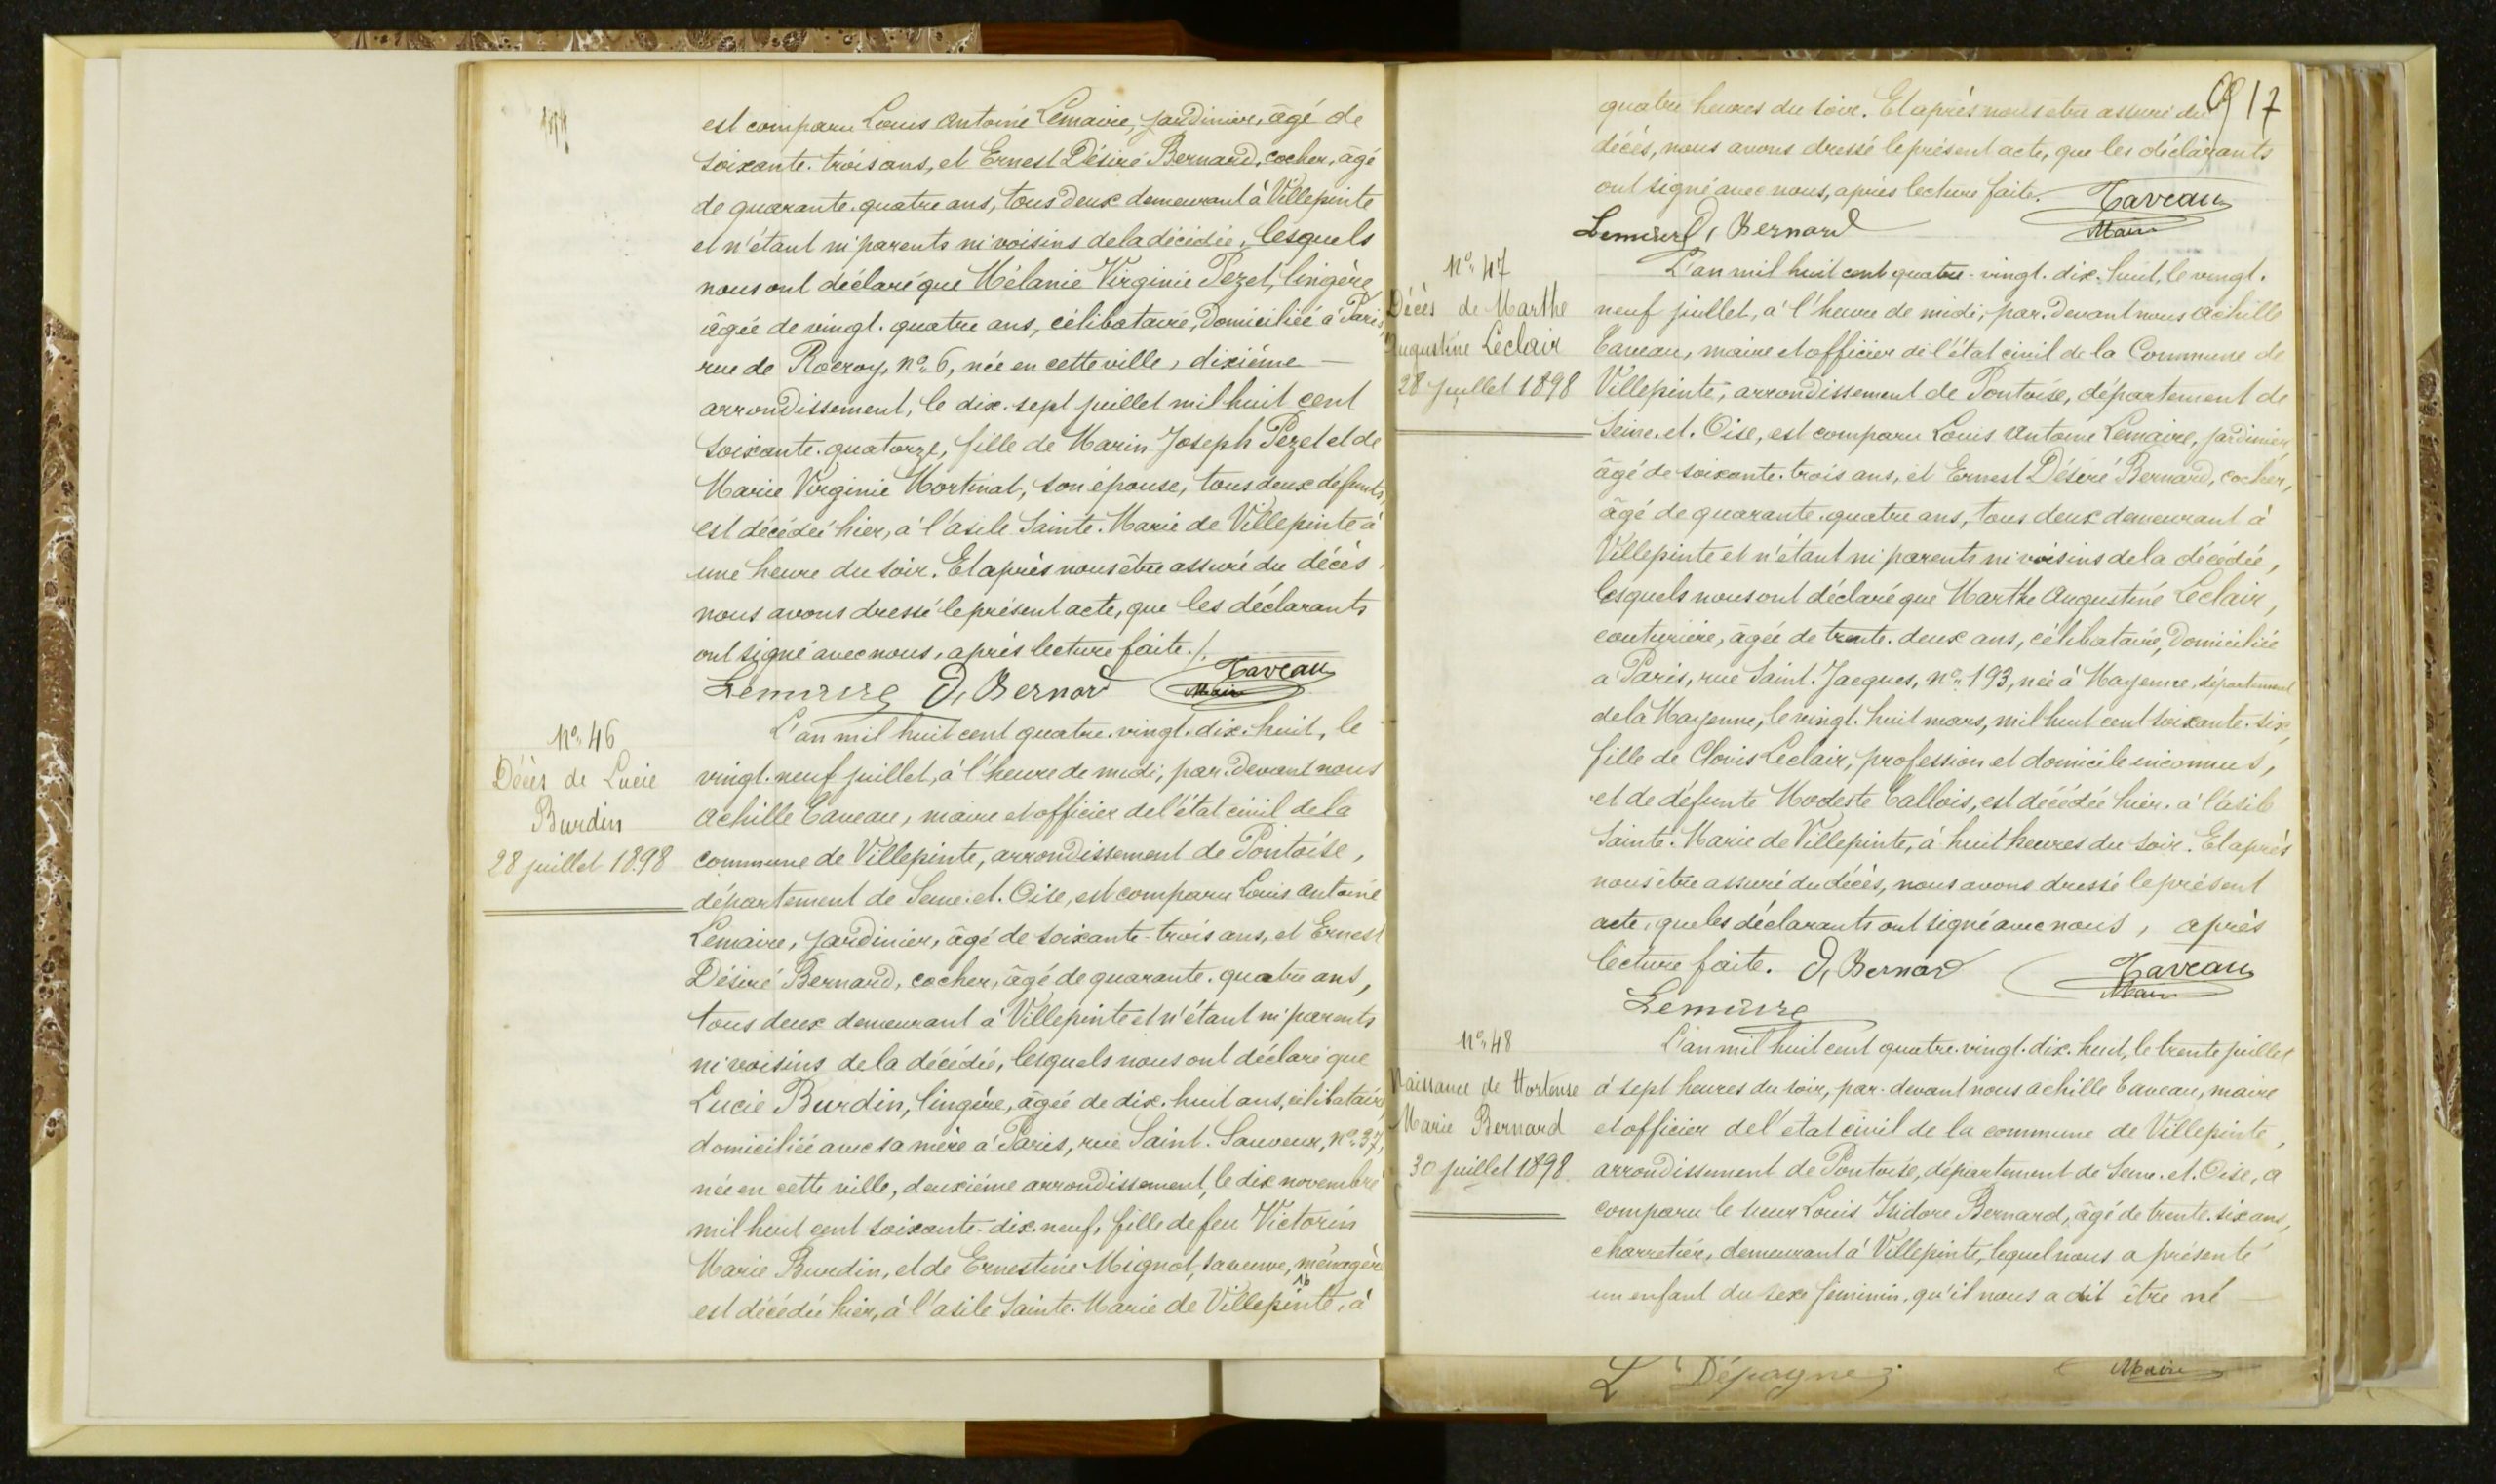 est comparu Louis Antoine Lemaire, jardinier, âgé de
soixante-trois ans, et Ernest Désiré Bernard, cocher, âgé
de quarante-quatre ans, tous deux demeurant à Villepinte
et n'étant ni parents ni voisins de la décédée, lesquels
nous ont déclaré que Mélanie Virginie Pezet, lingère,
âgée de vingt-quatre ans, célibataire, domiciliée à Paris,
rue de Rocroy, n° 6, née en cette ville, dixième
arrondissement, le dix-sept juillet mil huit cent
soixante-quatorze, fille de Marin Joseph Pezet et de
Marie Virginie Mortinat, son épouse, tous deux défunts,
est décédée hier, à l'asile Sainte-Marie de Villepinte à
une heure du soir. Et après nous être assuré du décès,
nous avons dressé le présent acte, que les déclarants
ont signé avec nous, après lecture faite./.
Lemaire D, Bernard Taveau
Maire
N° 46
Décès de Lucie
Burdin
28 juillet 1898
L'an mil huit cent quatre-vingt-dix-huit, le
vingt-neuf juillet, à l'heure de midi, par-devant nous
Achille Taveau, maire et officier de l'état civil de la
commune de Villepinte, arrondissement de Pontoise,
département de Seine-et-Oise, est comparu Louis Antoine
Lemaire, jardinier, âgé de soixante-trois ans, et Ernest
Désiré Bernard, cocher, âgé de quarante-quatre ans,
tous deux demeurant à Villepinte et n'étant ni parents
ni voisins de la décédée, lesquels nous ont déclaré que
Lucie Burdin, lingère, âgée de dix-huit ans, célibataire
domiciliée avec sa mère à Paris, rue Saint-Sauveur, n° 37,
née en cette ville, deuxième arrondissement, le dix novembre
mil huit cent soixante-dix-neuf, fille de feu Victorin
Marie Burdin, et de Ernestine Mignot, sa veuve, ménagère
est décédée hier, à l'asile Sainte-Marie de Villepinte, à
17
quatre heures du soir. Et après nous être assuré du
décès, nous avons dressé le présent acte, que les déclarants
ont signé avec nous, après lecture faite. Taveau
Lemaire D, Bernard Maire
N° 47
Décès de Marthe
Augustine Leclair
28 juillet 1898
L'an mil huit cent quatre-vingt-dix-huit, le vingt-
neuf juillet, à l'heure de midi, par-devant nous Achille
Taveau, maire et officier de l'état civil de la Commune de
Villepinte, arrondissement de Pontoise, département de
Seine-et-Oise, est comparu Louis Antoine Lemaire, jardinier,
âgé de soixante-trois ans, et Ernest Désiré Bernard, cocher,
âgé de quarante-quatre ans, tous deux demeurant à
Villepinte et n'étant ni parents ni voisins de la décédée,
lesquels nous ont déclaré que Marthe Augustine Leclair,
couturière, âgée de trente-deux ans, célibataire, domiciliée
à Paris, rue Saint-Jacques, n° 193, née à Mayenne, département
de la Mayenne, le vingt-huit mars, mil huit cent soixante-six,
fille de Clovis Leclair, profession et domicile inconnus,
et de défunte Modeste Callois, est décédée hier, à l'asile
Sainte-Marie de Villepinte, à huit heures du soir. Et après
nous être assuré du décès, nous avons dressé le présent
acte, que les déclarants ont signé avec nous, après
lecture faite. D, Bernard Taveau
Lemaire Maire
N° 48
Naissance de Hortense
Marie Bernard
30 juillet 1898
L'an mil huit cent quatre-vingt-dix-huit, le trente juillet
à sept heures du soir, par-devant nous Achille Taveau, maire
et officier de l'état civil de la commune de Villepinte,
arrondissement de Pontoise, département de Seine-et-Oise, a
comparu le sieur Louis Isidore Bernard, âgé de trente-six ans,
charretier, demeurant à Villepinte, lequel nous a présenté
un enfant du sexe féminin, qu'il nous a dit être né
L Dépagnez Maire